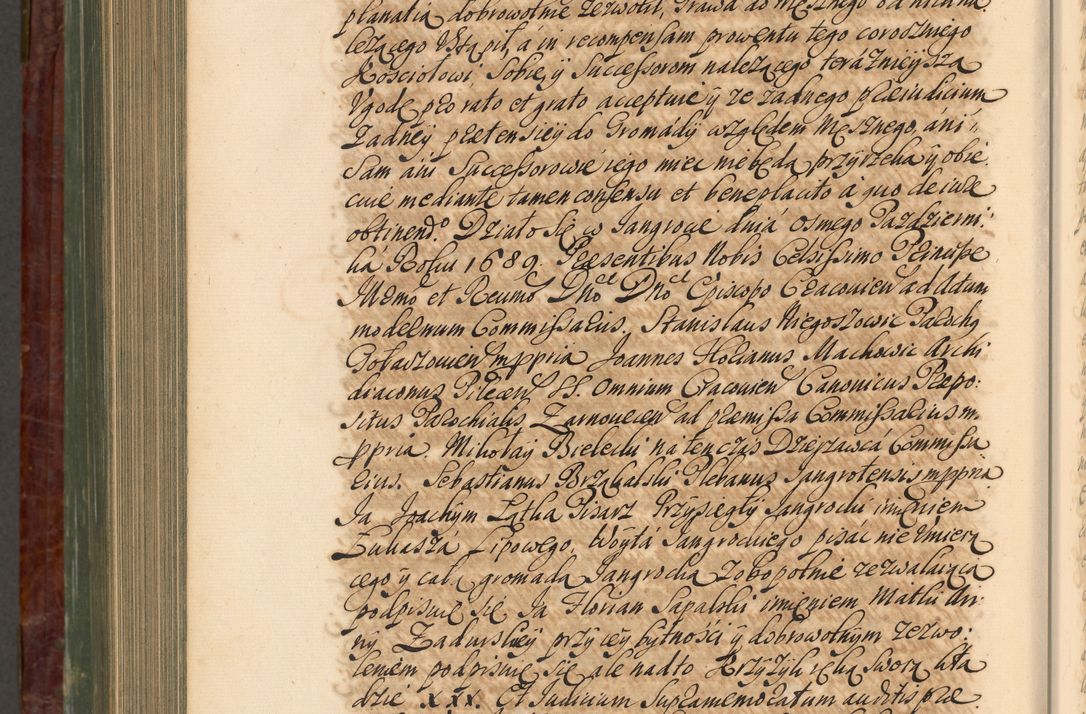 planatią dobrowolnie zezwolał, Prawa do męsznego
leżącego Ustąpił, á in recompensam prowentu tego corocznego
Kosciołowi Sobie, ÿ Successorom należącego teráznieÿszą
Vgodę pro rato et grato acceptuie ÿ ze żadnego præiudicium
Żadneÿ prætensieÿ do Gromadÿ względem Męsznego, áni
Sam áni Successorowie iego miec niebędą przÿrzeka ÿ obie
cuie mediante tamen consensu et beneplacito á quo de iure
obtinendo. Działo się w Jangrocie dnia osmego Pazdzierni
ka Roku 1689. Præsentibus Nobis Celsissimo Principe
Illmo et Reumo Dno Dno Episcopo Cracovien ad Actum
modernum Commissarius, Stanislaus Niegoszowic Paroch9
Gołaszovien mppria Joannes Holianus Machowic Archi
diaconus Pilecen SS. Omnium Cracovien Canonicus Præpo:
situs Parochialis Zarnovecen ad præmissa Commissarius m
ppria. Mikołaÿ Bielecki natenczás Dzierzawcá Commissa
rius. Sebastianus Brząkalski Plebanus Jangrotensis mppria
Ja Joachÿm Łątka Pisarz Przÿsięgłÿ Jangrocki imieniem
Łukaszá Lipowego, Woÿta Jangrockiego pisać nie Umieią
cego ÿ cał. gromada Jangrocka Zobopolnie zezwalaiąca
podpisuie się Ja Florian Sapalski imieniem Matki An
nÿ Zadurskieÿ przÿ ieÿ bÿtności ÿ dobrowolnÿm zezwo:
leniem podpisuie się, ale nadto Krzÿżÿk ręką swoią kła
dzie xxx. Et Judicium Supramemoratum auditis præ